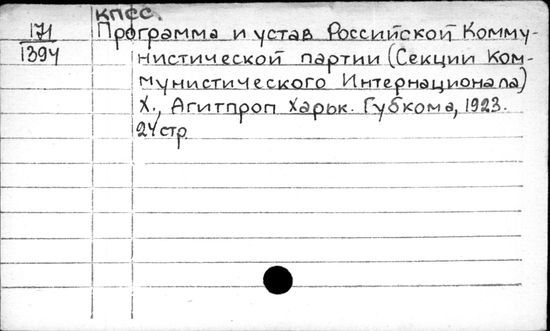 КПСС.
171
1394
Программа и устав Российской Комму-
нистической партии (Секции Ком-
мунистического Интернационала)
Х., Агитпроп Харьк. Губкома, 1923.
24 стр.